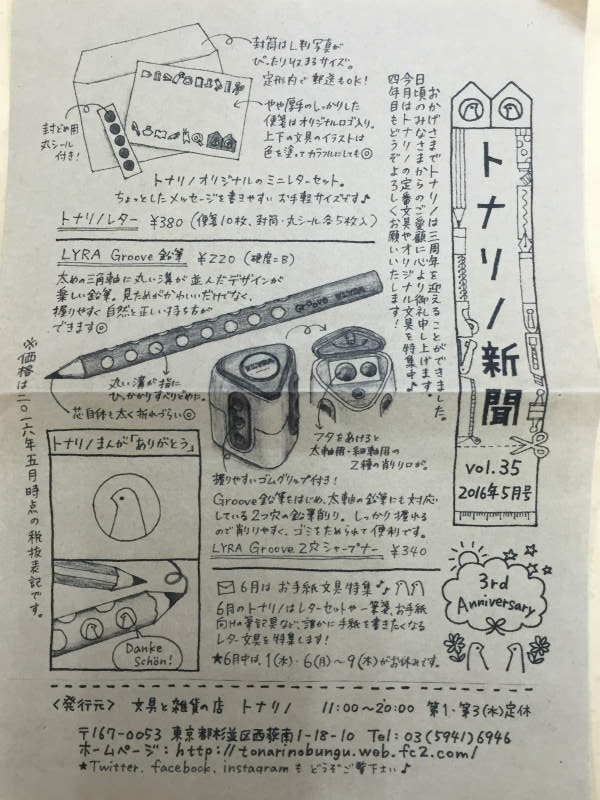 トナリノ新聞
vol.35
2016年5月号
おかげさまでトナリノは三周年を迎えることができました。
日頃のみなさまからのご愛顧に心より御礼申し上げます。
今月はトナリノの定番文具やオリジナル文具を特集中♪
四年目もどうぞよろしくお願いいたします!
封筒はL判写真が
ぴったり収まるサイズ。
定形内で郵送もOK!
やや厚手のしっかりした
便箋はオリジナルロゴ入り。
上下の文具のイラストは
色を塗ってカラフルにしても◎
封どめ用
丸シール
付き!
トナリノオリジナルのミニレターセット。
ちょっとしたメッセージを書きやすいお手軽サイズです♪
トナリノレター ¥380 (便箋10枚、封筒・丸シール各5枚入)
LYRA Groove 鉛筆 ¥220 (硬度=B)
太めの三角軸に丸い溝が並んだデザインが
楽しい鉛筆。見ためがかわいいだけでなく、
握りやすく自然と正しい持ち方が
できます◎
Groove LYRA
丸い溝が指に
ひっかかりすべりどめに。
芯自体も太く折れづらい◎
フタをあけると
太軸用・細軸用の
2種の削り口が。
握りやすいゴムグリップ付き!
Groove鉛筆をはじめ、太軸の鉛筆にも対応
している2つ穴の鉛筆削り。しっかり握れる
ので削りやすく、ゴミをためられて便利です。
LYRA Groove 2穴シャープナー ¥340
トナリノまんが「ありがとう」
Danke
Schön!
※価格は二〇一六年五月時点の税抜表記です。
6月はお手紙文具特集♪
6月のトナリノはレターセットや一筆箋、お手紙
向けの筆記具など、誰かに手紙を書きたくなる
レター文具を特集します!
★6月中は、1(水)・6(月)〜9(木)がお休みです。
3rd
Anniversary
<発行元> 文具と雑貨の店 トナリノ 11:00〜20:00 第1・第3(水)定休
〒167-0053 東京都杉並区西荻南1-18-10 Tel: 03(5941)6946
ホームページ:http://tonarinobungu.web.fc2.com/
★Twitter, facebook, instagramもどうぞご覧下さい♪